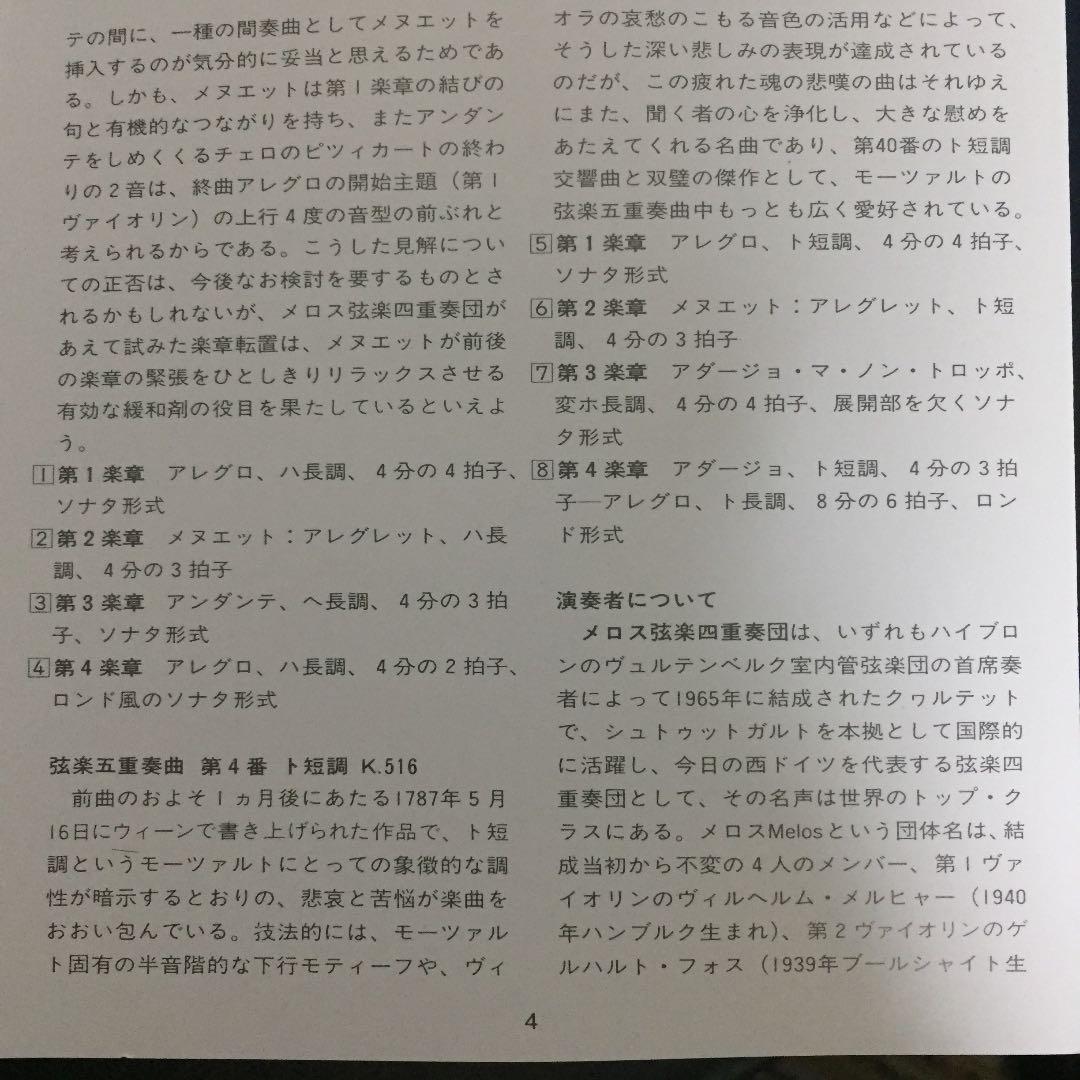 テの間に、一種の間奏曲としてメヌエットを
挿入するのが気分的に妥当と思えるためであ
る。しかも、メヌエットは第1楽章の結びの
句と有機的なつながりを持ち、またアンダン
テをしめくくるチェロのピツィカートの終わ
りの2音は、終曲アレグロの開始主題（第1
ヴァイオリン）の上行4度の音型の前ぶれと
考えられるからである。こうした見解につい
ての正否は、今後なお検討を要するものとさ
れるかもしれないが、メロス弦楽四重奏団が
あえて試みた楽章転置は、メヌエットが前後
の楽章の緊張をひとしきりリラックスさせる
有効な緩和剤の役目を果たしているといえよ
う。
1 第1楽章　アレグロ、ハ長調、4分の4拍子、
ソナタ形式
2 第2楽章　メヌエット：アレグレット、ハ長
調、4分の3拍子
3 第3楽章　アンダンテ、ヘ長調、4分の3拍
子、ソナタ形式
4 第4楽章　アレグロ、ハ長調、4分の2拍子、
ロンド風のソナタ形式
弦楽五重奏曲 第4番 ト短調 K.516
前曲のおよそ1ヵ月後にあたる1787年5月
16日にウィーンで書き上げられた作品で、ト短
調というモーツァルトにとっての象徴的な調
性が暗示するとおりの、悲哀と苦悩が楽曲を
おおい包んでいる。技法的には、モーツァル
ト固有の半音階的な下行モティーフや、ヴィ
オラの哀愁のこもる音色の活用などによって、
そうした深い悲しみの表現が達成されている
のだが、この疲れた魂の悲嘆の曲はそれゆえ
にまた、聞く者の心を浄化し、大きな慰めを
あたえてくれる名曲であり、第40番のト短調
交響曲と双璧の傑作として、モーツァルトの
弦楽五重奏曲中もっとも広く愛好されている。
5 第1楽章　アレグロ、ト短調、4分の4拍子、
ソナタ形式
6 第2楽章　メヌエット：アレグレット、ト短
調、4分の3拍子
7 第3楽章　アダージョ・マ・ノン・トロッポ、
変ホ長調、4分の4拍子、展開部を欠くソナ
タ形式
8 第4楽章　アダージョ、ト短調、4分の3拍
子―アレグロ、ト長調、8分の6拍子、ロン
ド形式
演奏者について
メロス弦楽四重奏団は、いずれもハイブロ
ンのヴュルテンベルク室内管弦楽団の首席奏
者によって1965年に結成されたクヮルテット
で、シュトゥットガルトを本拠として国際的
に活躍し、今日の西ドイツを代表する弦楽四
重奏団として、その名声は世界のトップ・ク
ラスにある。メロスMelosという団体名は、結
成当初から不変の4人のメンバー、第1ヴァ
イオリンのヴィルヘルム・メルヒャー（1940
年ハンブルク生まれ）、第2ヴァイオリンのゲ
ルハルト・フォス（1939年ブールシャイト生
4